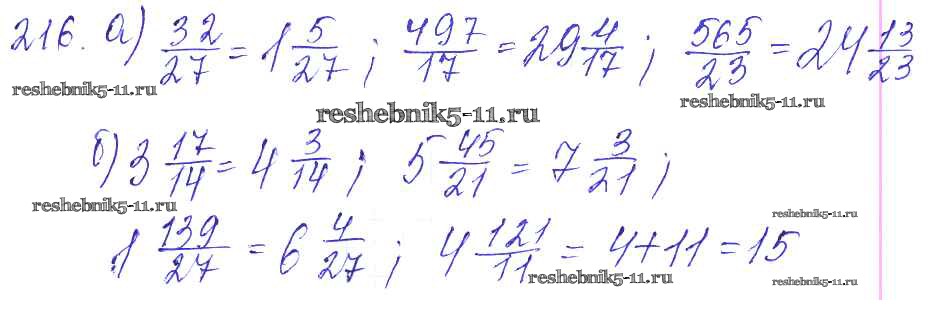 216. а) 32/27 = 1 5/27; 497/17 = 29 4/17; 565/23 = 24 13/23
reshebnik5-11.ru reshebnik5-11.ru
reshebnik5-11.ru
б) 3 17/14 = 4 3/14; 5 45/21 = 7 3/21;
reshebnik5-11.ru reshebnik5-11.ru
1 139/27 = 6 4/27; 4 121/11 = 4+11 = 15
reshebnik5-11.ru reshebnik5-11.ru